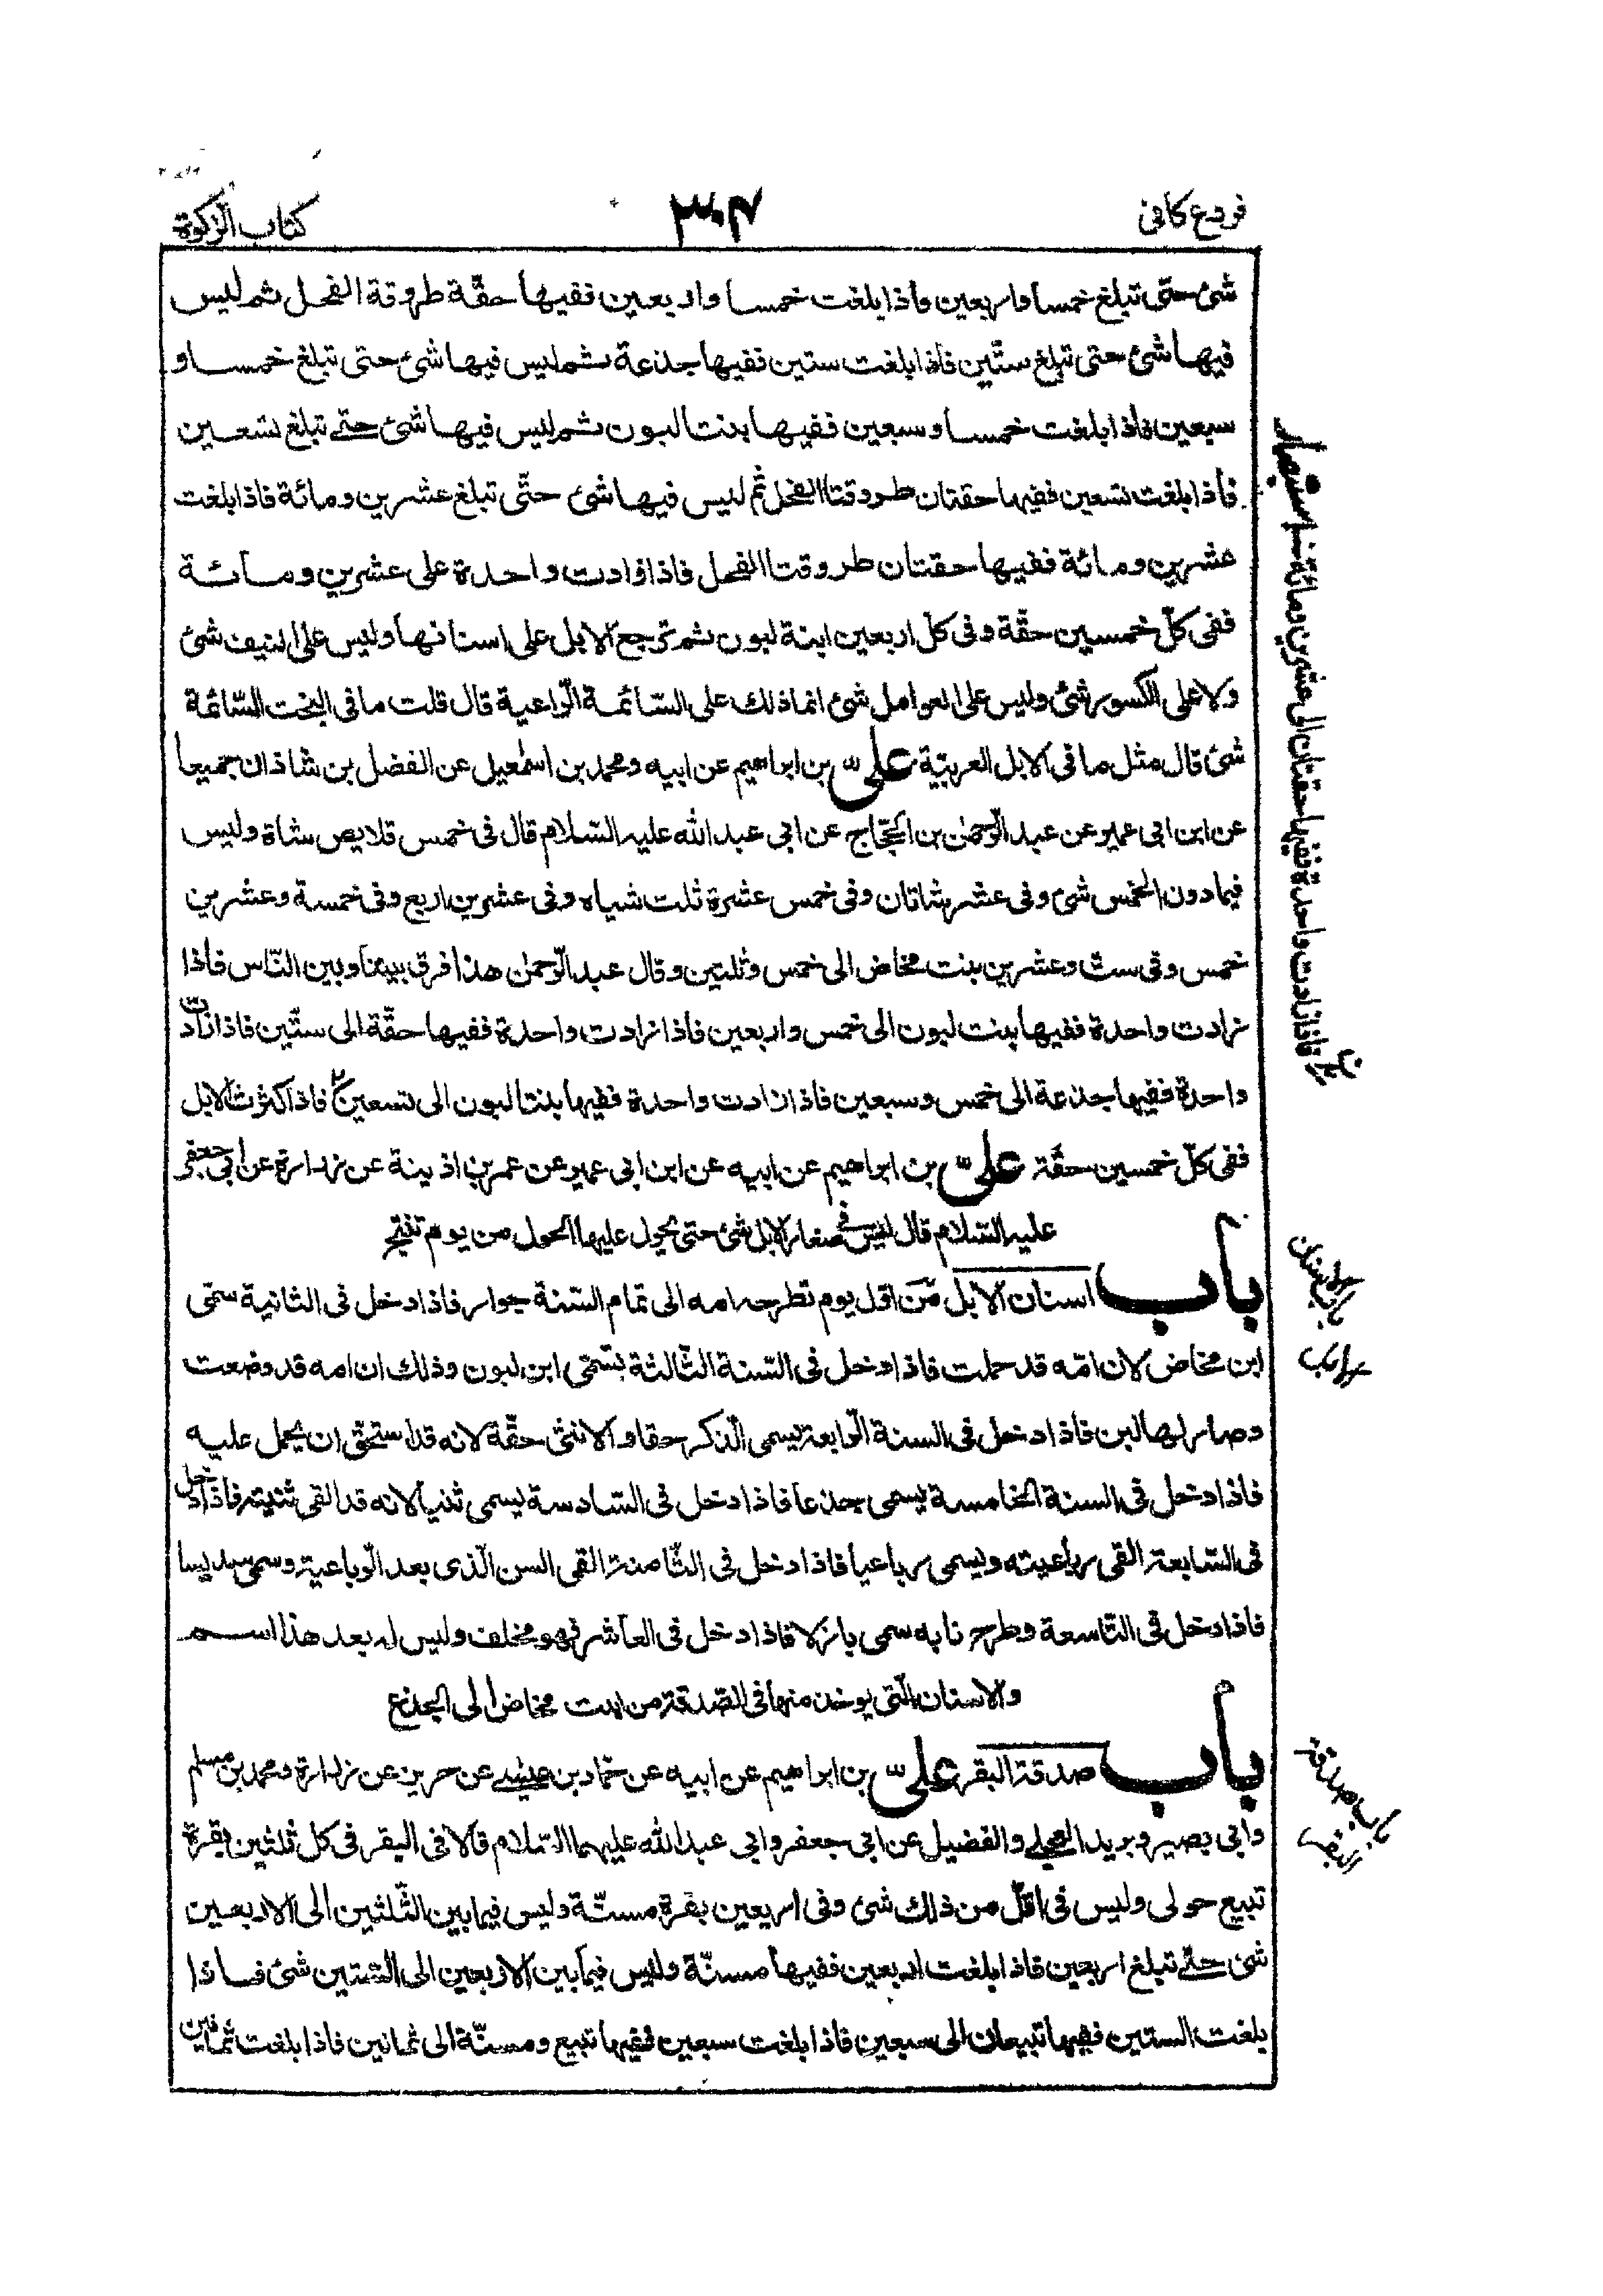 فروع كافى
٣٠٤
كتاب الزكوة
شئ حتى تبلغ خمسا واربعين واذا بلغت خمسا واربعين ففيها حقّة طروقة الفحل ثم ليس
فيها شئ حتى تبلغ ستّين فاذا بلغت ستين ففيها جذعة ثم ليس فيها شئ حتى تبلغ خمسا و
سبعين فاذا بلغت خمسا وسبعين ففيها بنتا لبون ثم ليس فيها شئ حتى تبلغ تسعين
فاذا بلغت تسعين ففيها حقتان طروقتا الفحل ثم ليس فيها شئ حتّى تبلغ عشرين ومائة فاذا بلغت
عشرين ومائة ففيها حقتان طروقتا الفحل فاذا زادت واحدة على عشرين ومائة
ففى كلّ خمسين حقّة وفى كلّ اربعين ابنة لبون ثم ترجع الابل على اسنانها وليس على النيف شئ
ولا على الكسور شئ وليس على العوامل شئ انما ذلك على السّائمة الرّاعية قال قلت ما فى البخت السّائمة
شئ قال مثل ما فى الابل العربيّة علىّ بن ابراهيم عن ابيه ومحمد بن اسمعيل عن الفضل بن شاذان جميعا
عن ابن ابى عمير عن عبد الرّحمن بن الحجّاج عن ابى عبد الله عليه السّلام قال فى خمس قلايص شاة وليس
فيما دون الخمس شئ وفى عشر شاتان وفى خمس عشرة ثلث شياه وفى عشرين اربع وفى خمسة وعشرين
خمس وفى ستّ وعشرين بنت مخاض الى خمس وثلثين وقال عبد الرّحمن هذا فرق بيننا وبين النّاس فاذا
زادت واحدة ففيها بنت لبون الى خمس واربعين فاذا زادت واحدة ففيها حقّة الى ستّين فاذا زادت
واحدة ففيها جذعة الى خمس وسبعين فاذا زادت واحدة ففيها بنتا لبون الى تسعين فاذا كثرت الابل
ففى كلّ خمسين حقّة علىّ بن ابراهيم عن ابيه عن ابن ابى عمير عن عمر بن اذينة عن زرارة عن ابى جعفر
عليه السّلام قال ليس فى صغار الابل شئ حتى يحول عليها الحول من يوم تنتج
باب اسنان الابل من اوّل يوم تطرحه امه الى تمام السّنة حوار فاذا دخل فى الثانية سمّى
ابن مخاض لان امّه قد حملت فاذا دخل فى السّنة الثّالثة يسمّى ابن لبون وذلك ان امه قد وضعت
وصار لها لبن فاذا دخل فى السنة الرّابعة يسمى الذّكر حقا والانثى حقّة لانه قد استحق ان يحمل عليه
فاذا دخل فى السنة الخامسة يسمى جذعا فاذا دخل فى السّادسة يسمى ثنيا لانه قد القى ثنيته فاذا دخل
فى السّابعة القى رباعيته ويسمى رباعيا فاذا دخل فى الثّامنة القى السن الّذى بعد الرّباعية وسمى سديسا
فاذا دخل فى التّاسعة وطرح نابه سمى بازلا فاذا دخل فى العاشر فهو مخلف وليس له بعد هذا اسم
والاسنان الّتى يوخذ منها فى الصّدقة من ابنت مخاض الى الجذع
باب صدقة البقر علىّ بن ابراهيم عن ابيه عن حمّاد بن عيسى عن حريز عن زرارة ومحمد بن مسلم
وابى بصير وبريد العجلى والفضيل عن ابى جعفر وابى عبد الله عليهما السّلام قالا فى البقر فى كل ثلثين بقرة
تبيع حولى وليس فى اقلّ من ذلك شئ وفى اربعين بقرة مسنّة وليس فيما بين الثّلثين الى الاربعين
شئ حتّى تبلغ اربعين فاذا بلغت اربعين ففيها مسنّة وليس فيما بين الاربعين الى السّتين شئ فاذا
بلغت الستين ففيها تبيعان الى سبعين فاذا بلغت سبعين ففيها تبيع ومسنّة الى ثمانين فاذا بلغت ثمانين
فاذا زادت واحدة ففيها حقتان الى عشرين ومائة استبصار
باب اسنان
الابل
باب صدقة
البقر